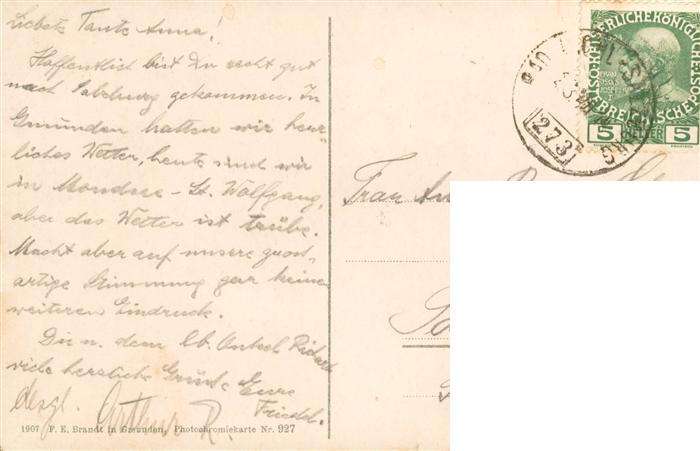 Liebste Tante Anna!
Hoffentlich bist Du recht gut
nach Salzburg gekommen. In
Gmunden hatten wir herr-
liches Wetter, heute sind wir
in Mondsee - St. Wolfgang,
aber das Wetter ist trübe.
Macht aber auf unsere gross-
artige Stimmung gar keinen
weiteren Eindruck.
Dir u. dem lb. Onkel Richard
viele herzliche Grüsse Eure
Friedl.
desgl. Arthur R.
1907 F. E. Brandt in Gmunden, Photochromiekarte Nr. 927
KAISERLICHE KÖNIGLICHE
ÖSTERREICHISCHE
5 HELLER 5
273
Frau